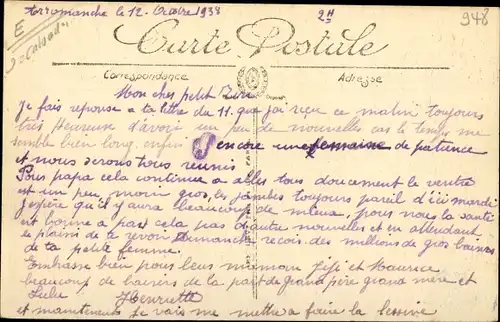 Arromanche le 12 Octobre 1938
2H
948
E
Calvados
Carte Postale
Correspondance
Adresse
Mon cher petit
Je fais reponse a ta lettre du 11. que j'ai reçue ce matin toujours
très Heureuse d'avoir un peu de nouvelles car le temps me
semble bien long. enfin encore une semaine de patience
et nous serons tous reunis
Pour papa cela continue a aller tous doucement le ventre
est un peu moin gros, les jambes toujours pareil d'ici mardi
j'espère qu'il y aura beaucoup de mieux, pour nous la santé
est bonne a part cela pas d'autre nouvelles et en attendant
le plaisir de te revoir dimanche recois des millions de gros baisers
de ta petite femme.
Embrasse bien pour leurs maman Fifi et Maurice
beaucoup de baisers de la part de grand père grand mère et
Lulu Henriette
et maintenant je vais me mettre a faire la lessive